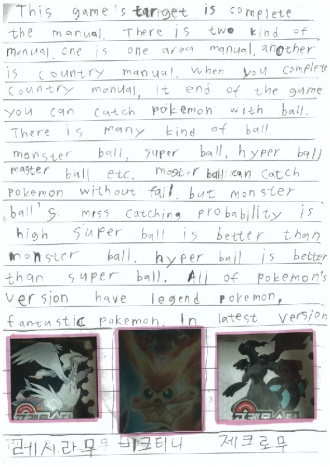 This game's target is complete
the manual. There is two kind of
manual. one is one area manual, another
is country manual. When you complete
country manual, it end of the game
you can catch pokemon with ball.
There is many kind of ball
monster ball, super ball, hyper ball
master ball etc. master ball can catch
pokemon without fail. but monster
ball's miss catching probability is
high super ball is better than
monster ball. hyper ball is better
than super ball. All of pokemon's
version have legend pokemon,
fantastic pokemon. In latest version
레시라무 비크티니 제크로무